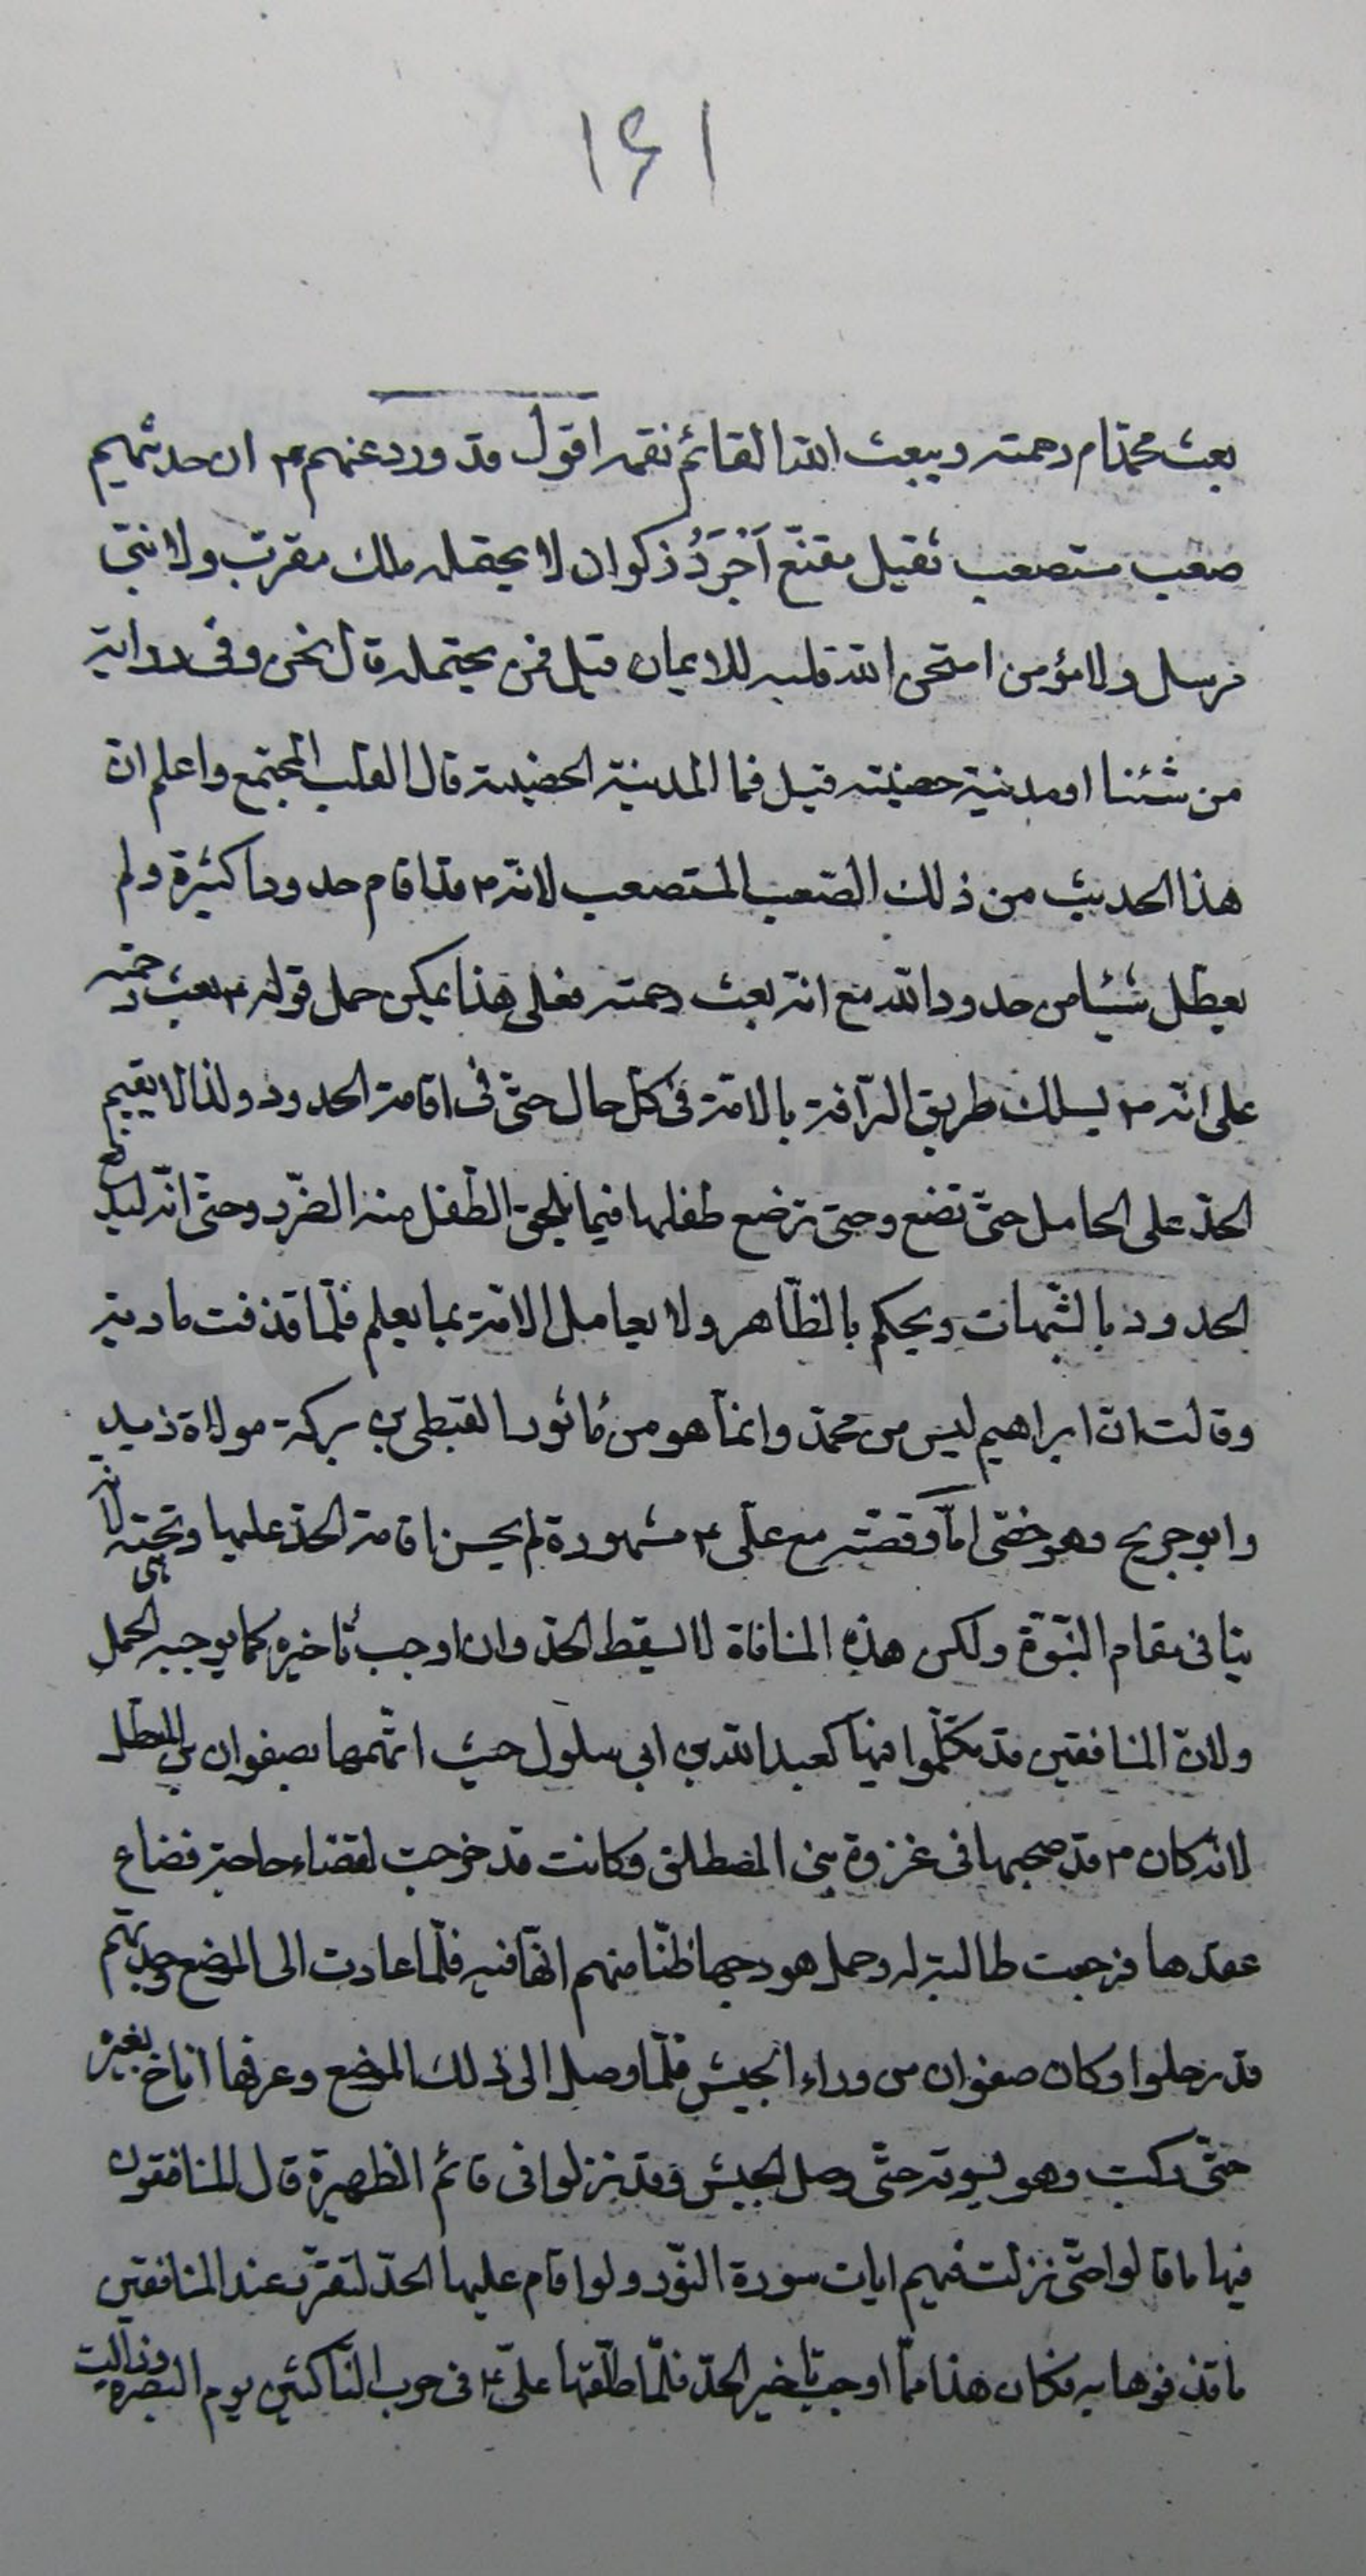 ١۶١
بعث محمدا م رحمته ويبعث الله القائم نقمه اقول قد ورد عنهم ع ان حديثهم
صعب مستصعب ثقيل مقنّع اَجْرَدُ ذكوان لا يحتمله ملك مقرب ولا نبيّ
مرسل ولا مؤمن امتحن الله قلبه للايمان قيل فمن يحتمله قال نحن وفى رواية
من شئنا او مدينة حصينة قيل فما المدينة الحصينة قال القلب المجتمع واعلم ان
هذا الحديث من ذلك الصّعب المستصعب لانّه ص قد اقام حدودا كثيرة ولم
يعطّل شيئا من حدود الله مع انه بعث رحمته فعلى هذا يمكن حمل قوله ع بعث رحمته
على انّه ص يسلك طريق الرّافة بالامّة فى كلّ حال حتّى فى اقامة الحدود ولذا لا يقيم
الحدّ على الحامل حتّى تضع وحتى ترضع طفلها فيما يلحق الطّفل منه الضّرر وحتّى انّه ليدرء
الحدود بالشّبهات ويحكم بالظّاهر ولا يعامل الامّة بما يعلم فلمّا قذفت مارية
وقالت انّ ابراهيم ليس من محمّد وانما هو من مٔابور القبطى بن بركة مولاة
وابو جريح وهو خصّى امّا وقصّته مع علّى ع مشهورة لم يحسن اقامة الحدّ عليها وتحته لانه
هى
ينافى مقام النبّوّة ولكن هذه المنافاة لا يسقط الحدّ وان اوجب تٔاخيره كما يوجبه الحمل
ولانّ المنافقين قد تكلّموا فيها كعبد الله بن ابى سلول حيث اتّهمها بصفوان بن المعطل
لانه كان ص قد صحبها فى غزوة بنى المصطلق وكانت قد خرجت لقضاء حاجة فضاع
عقدها فرجعت طالبة له وحمل هودجها ظنّا منهم انّها فيه فلمّا عادت الى الموضع وجدتهم
قد رحلوا وكان صفوان من وراء الجيش فلمّا وصل الى ذلك الموضع وعرفها اناخ بعيره
حتّى ركبت وهو يسوقه حتّى وصل الجيش وقد نزلوا فى قائم الظهيرة قال المنافقون
فيها ما قالوا حتّى نزلت فيهم ايات سورة النّور ولو اقام عليها الحدّ لتقرّر عند المنافقين
ما قذفوها به فكان هذا ممّا اوجب تاخير الحدّ فلمّا طلّقها علىّ ع فى حرب النّاكثين يوم البصرة وزالت